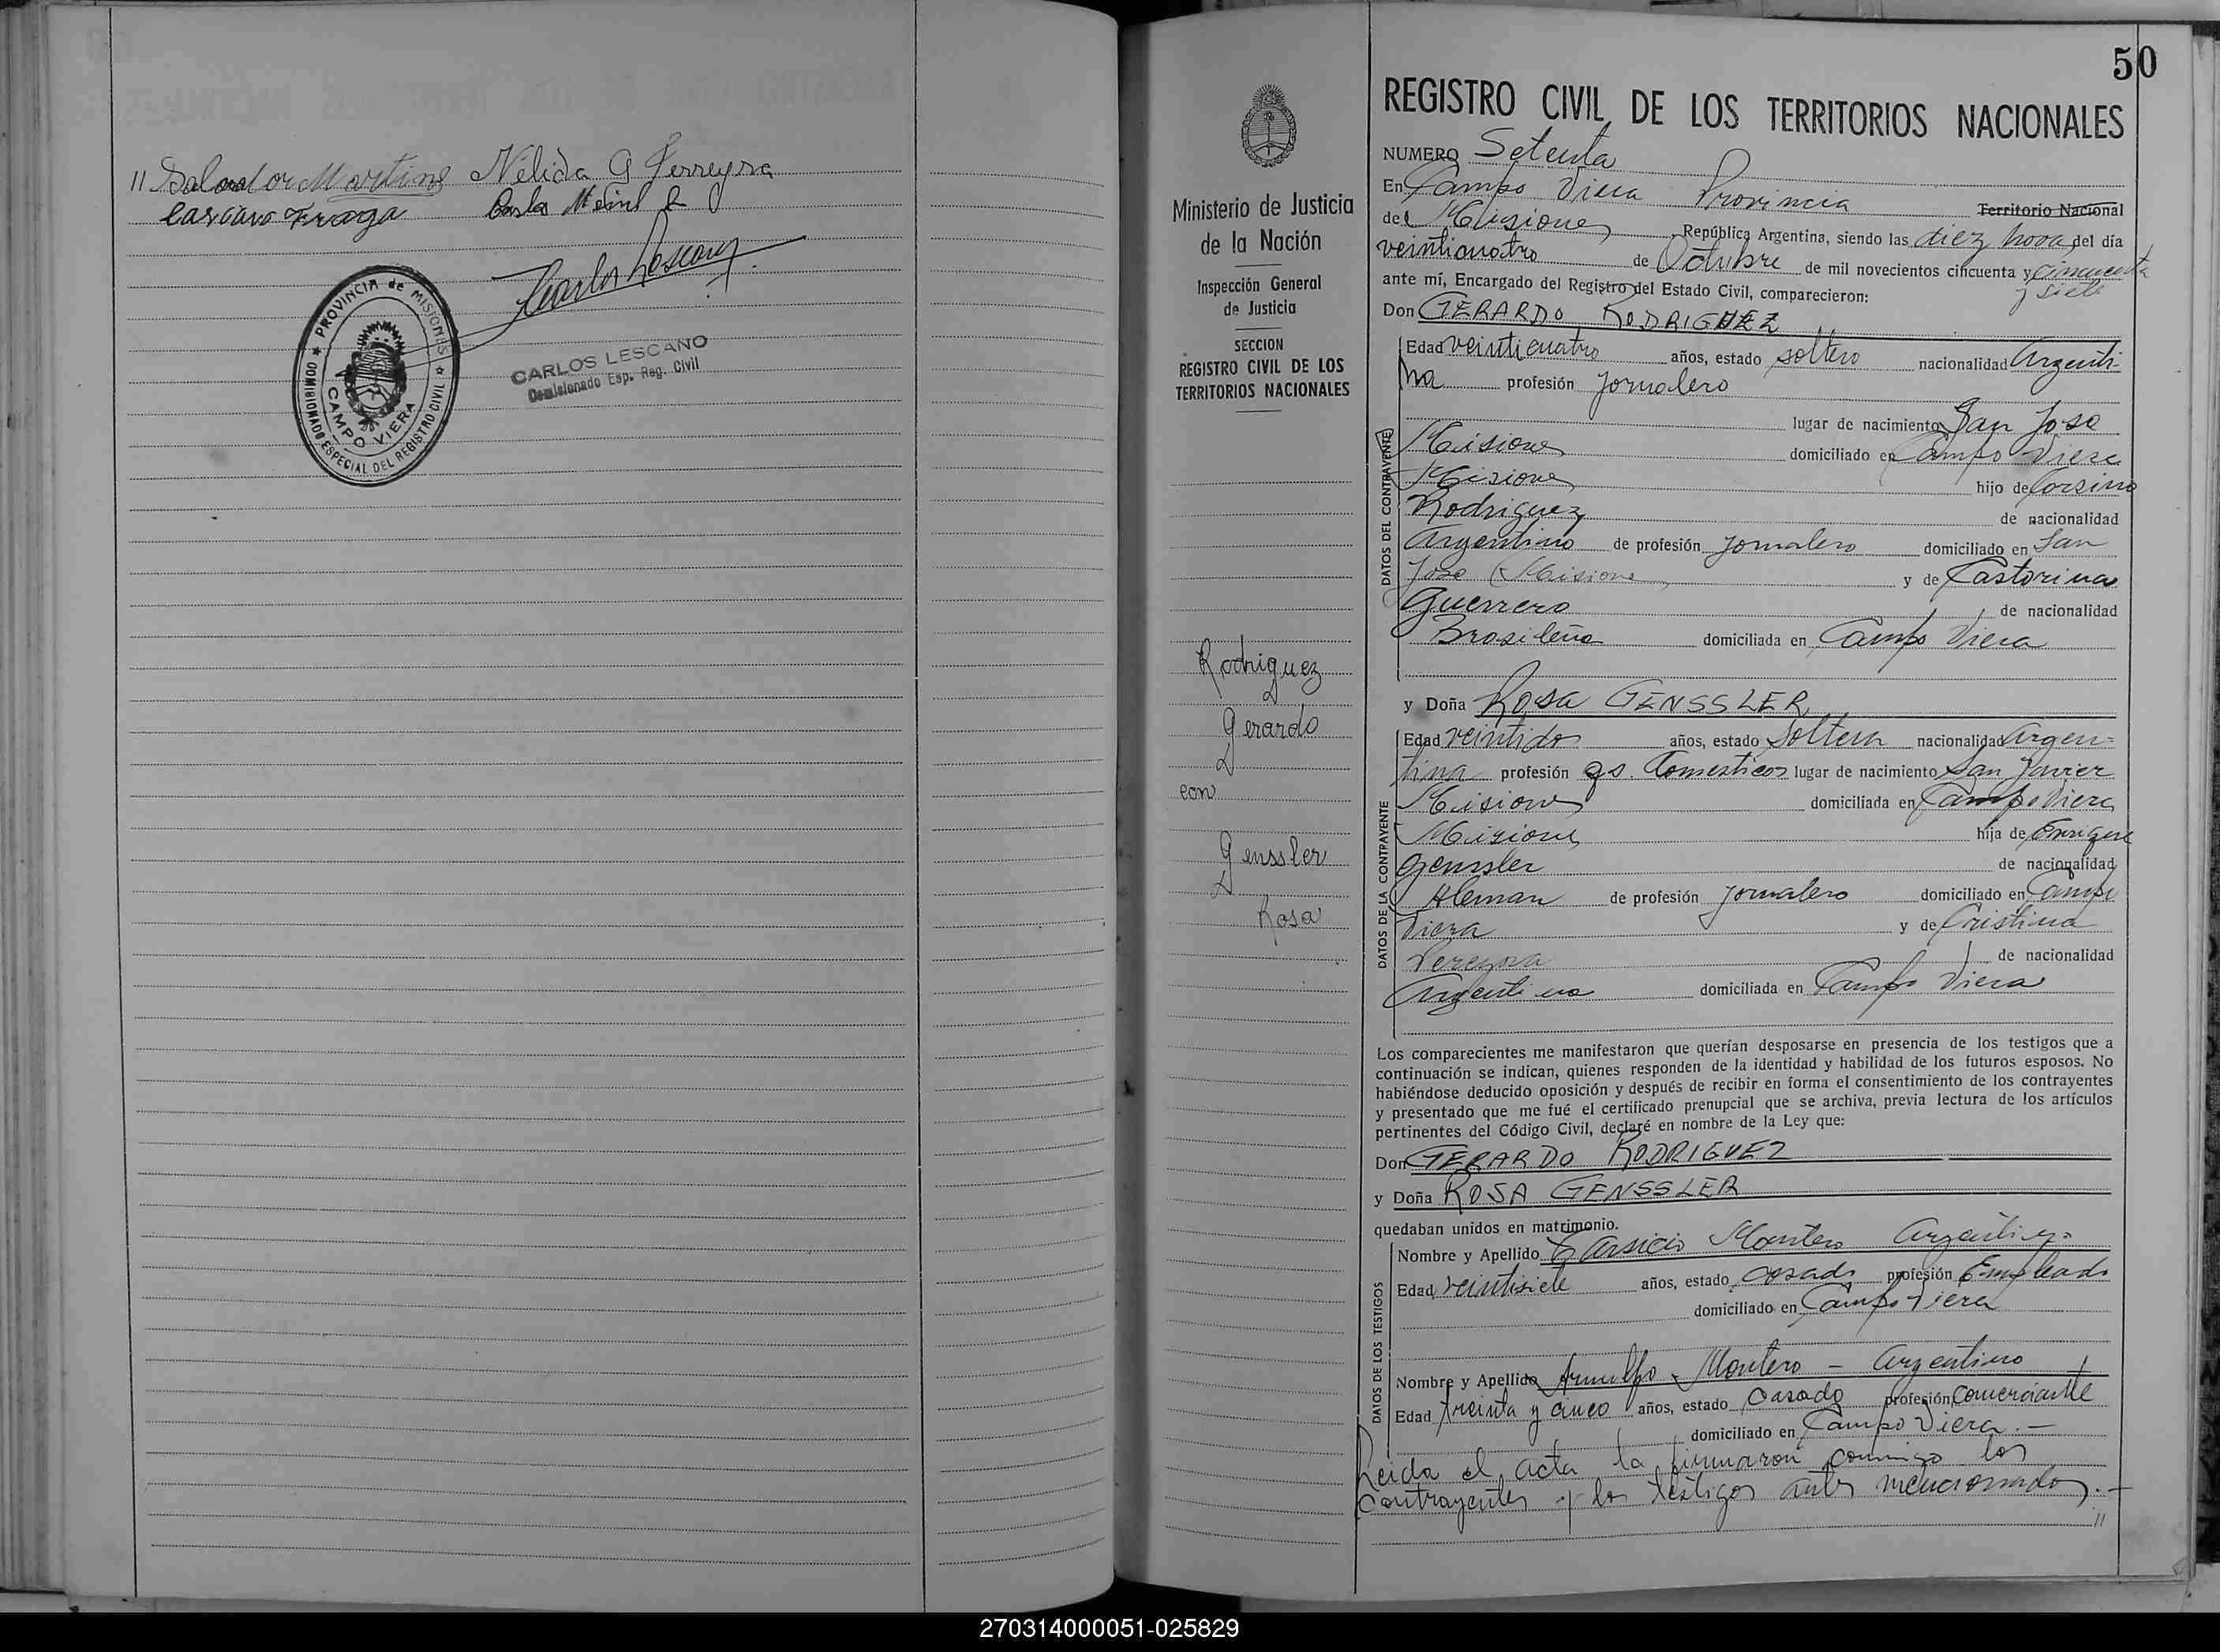 // Salvador Martinez Nélida G Ferreyra
Casiano Fraga
Carlos Lescano
PROVINCIA de MISIONES
COMISIONADO ESPECIAL DEL REGISTRO CIVIL
CAMPO VIERA
CARLOS LESCANO
Comisionado Esp. Reg. Civil
Ministerio de Justicia
de la Nación
Inspección General
de Justicia
SECCION
REGISTRO CIVIL DE LOS
TERRITORIOS NACIONALES
Rodriguez
Gerardo
con
Genssler
Rosa
50
REGISTRO CIVIL DE LOS TERRITORIOS NACIONALES
NUMERO Setenta
En Campo Viera Provincia Territorio Nacional
del Misiones República Argentina, siendo las diez horas del día
veinticuatro de Octubre de mil novecientos cincuenta y cincuenta
y siete
ante mí, Encargado del Registro del Estado Civil, comparecieron:
Don GERARDO RODRIGUEZ
DATOS DEL CONTRAYENTE
Edad veinticuatro años, estado soltero nacionalidad Argenti-
na profesión Jornalero
lugar de nacimiento San José
Misiones domiciliado en Campo Viera
Misiones hijo de Corsino
Rodriguez de nacionalidad
Argentino de profesión Jornalero domiciliado en San
José (Misiones y de Castorina
Guerrero de nacionalidad
Brasileña domiciliada en Campo Viera
y Doña ROSA GENSSLER
DATOS DE LA CONTRAYENTE
Edad veintidos años, estado Soltera nacionalidad Argen-
tina profesión qs. Domesticos lugar de nacimiento San Javier
Misiones domiciliada en Campo Viera
Misiones hija de Enrique
Genssler de nacionalidad
Aleman de profesión Jornalero domiciliado en Campo
Viera y de Cristina
de nacionalidad
Argentina domiciliada en Campo Viera
Los comparecientes me manifestaron que querían desposarse en presencia de los testigos que a
continuación se indican, quienes responden de la identidad y habilidad de los futuros esposos. No
habiéndose deducido oposición y después de recibir en forma el consentimiento de los contrayentes
y presentado que me fué el certificado prenupcial que se archiva, previa lectura de los artículos
pertinentes del Código Civil, declaré en nombre de la Ley que:
Don GERARDO RODRIGUEZ
y Doña ROSA GENSSLER
quedaban unidos en matrimonio.
DATOS DE LOS TESTIGOS
Nombre y Apellido Montero Argentino
Edad veintisiete años, estado casado profesión Empleado
domiciliado en Campo Viera
Nombre y Apellido Arnulfo Montero - Argentino
Edad treinta y cinco años, estado Casado profesión Comerciante
domiciliado en Campo Viera. -
Leida el acta la firmaron conmigo los
contrayentes y los testigos antes mencionados. -
//
270314000051-025829